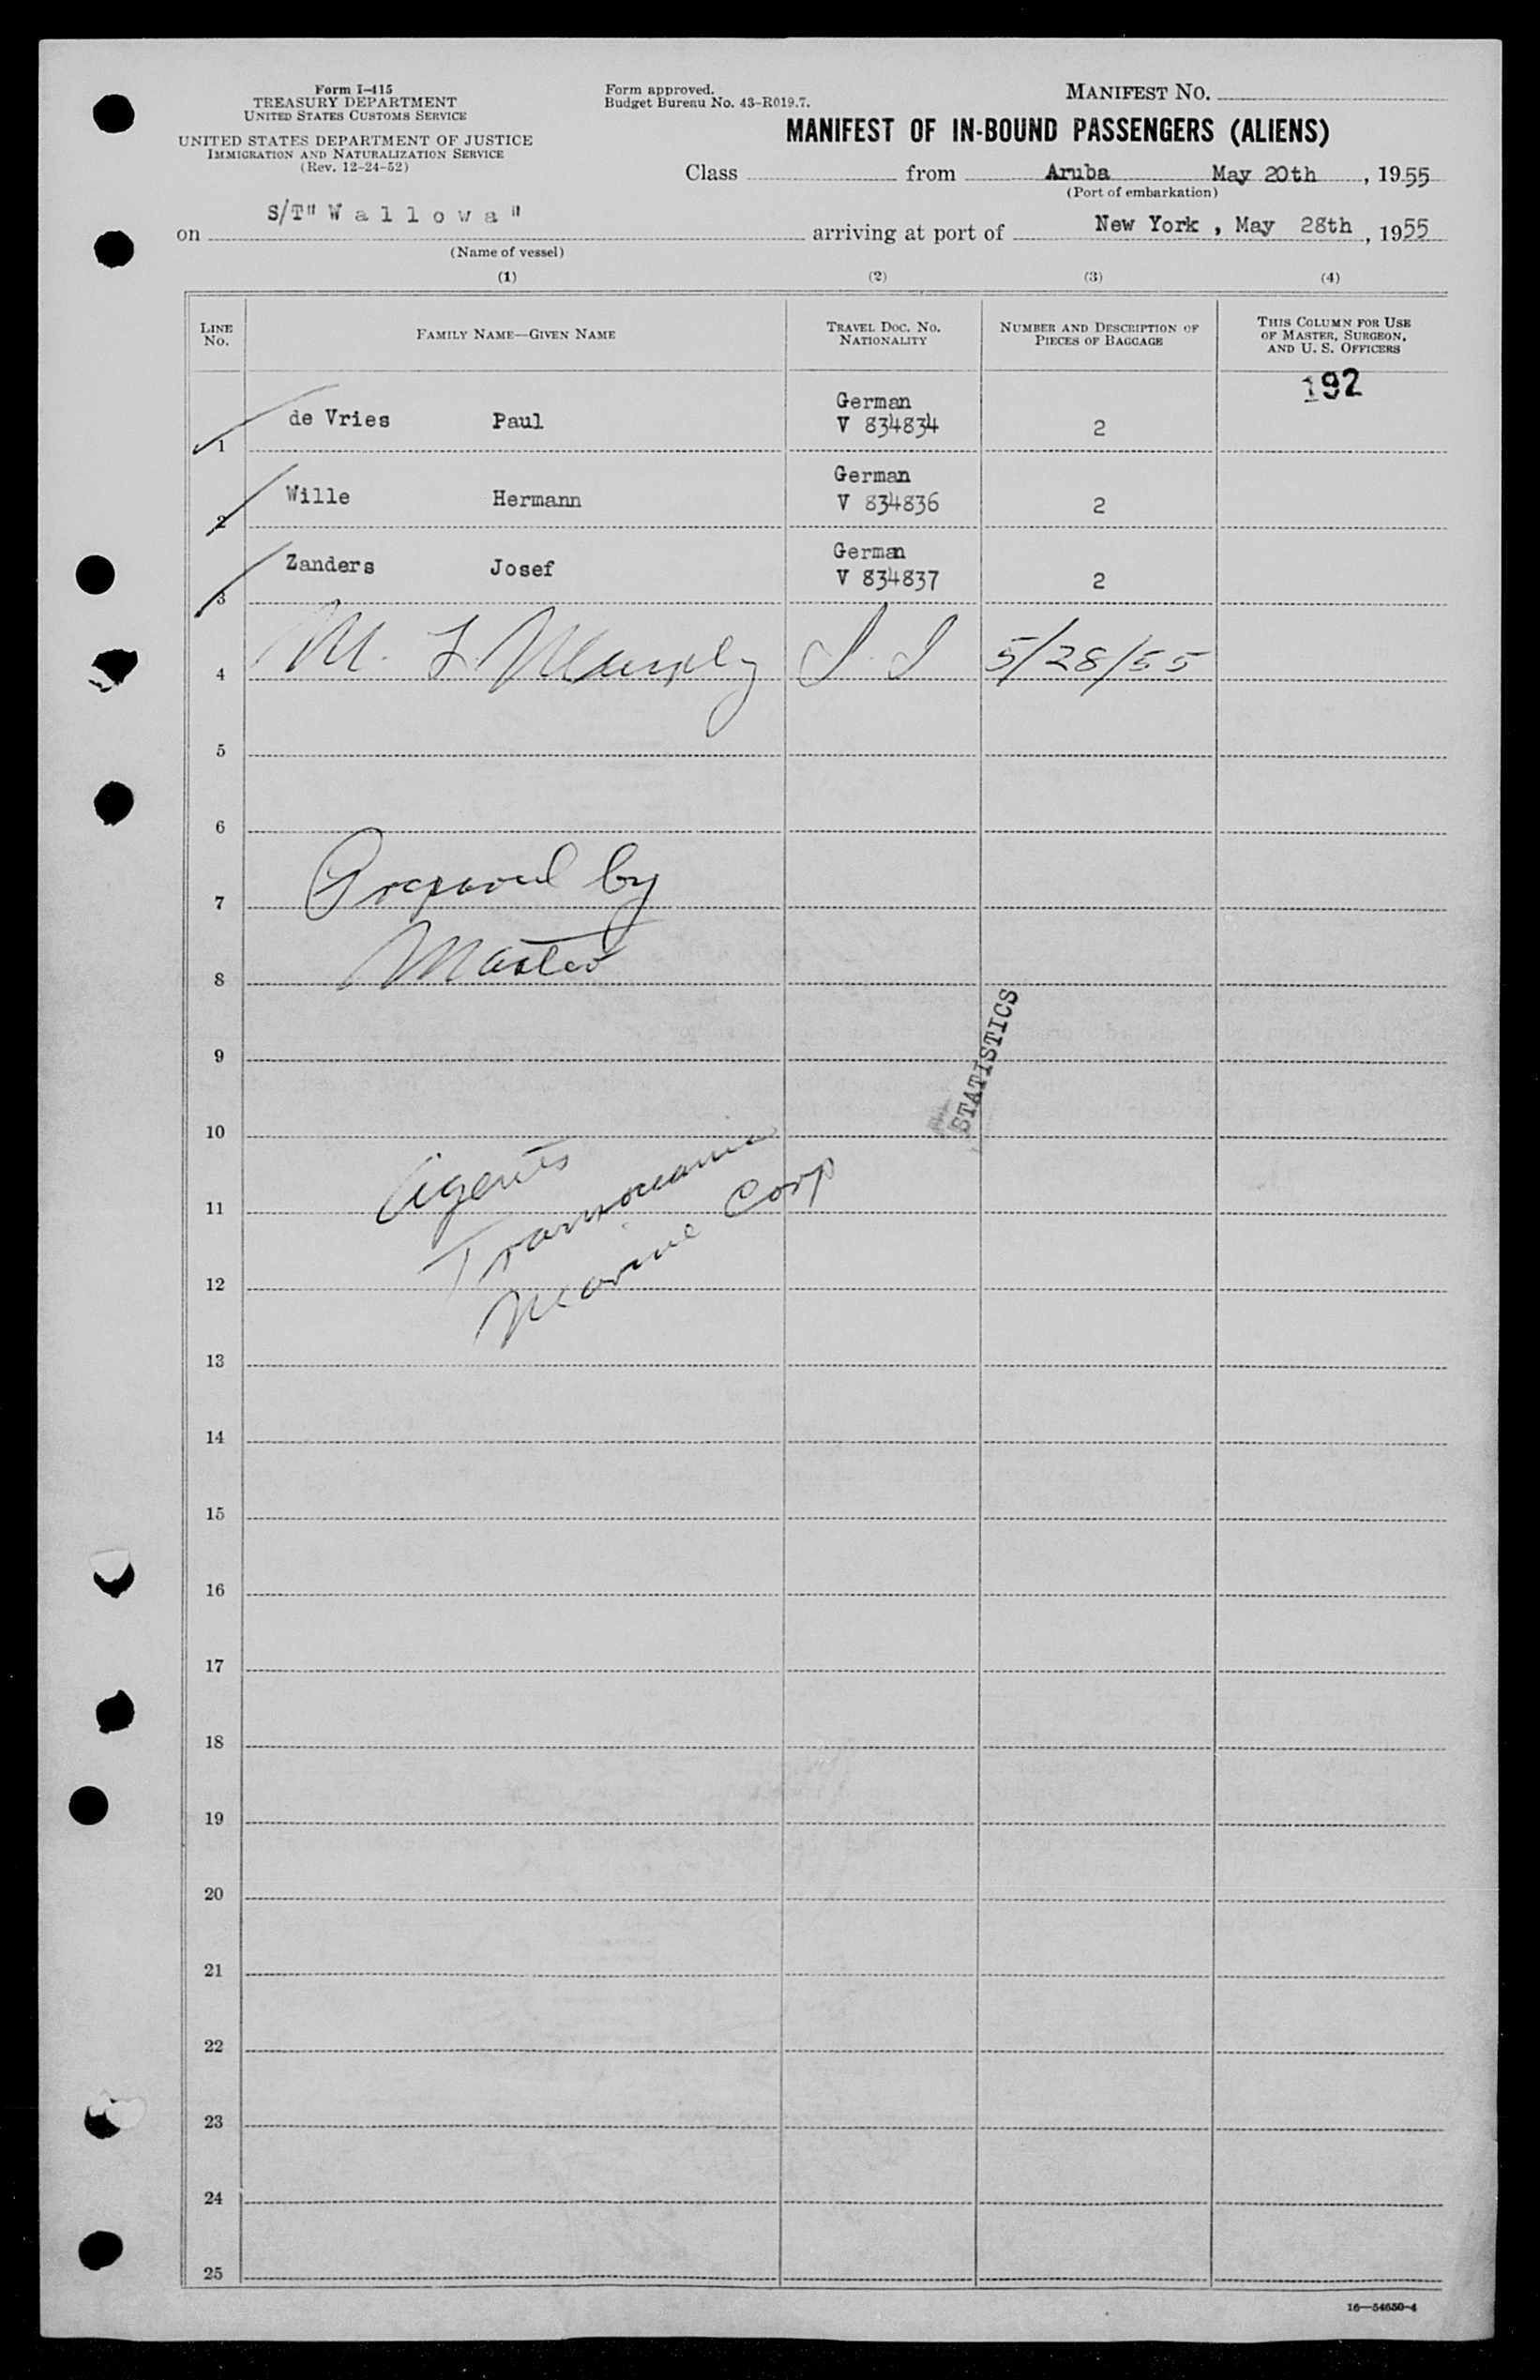 Form I-415
TREASURY DEPARTMENT
UNITED STATES CUSTOMS SERVICE
UNITED STATES DEPARTMENT OF JUSTICE
IMMIGRATION AND NATURALIZATION SERVICE
(Rev. 12-24-52)
Form approved.
Budget Bureau No. 43-R019.7.
MANIFEST NO.
MANIFEST OF IN-BOUND PASSENGERS (ALIENS)
Class from Aruba May 20th, 1955
(Port of embarkation)
on S/T" W a l l o w a " arriving at port of New York , May 28th, 1955
(Name of vessel)
(1) (2) (3) (4)
LINE NO. FAMILY NAME—GIVEN NAME TRAVEL DOC. NO. NATIONALITY NUMBER AND DESCRIPTION OF PIECES OF BAGGAGE THIS COLUMN FOR USE OF MASTER, SURGEON, AND U. S. OFFICERS
192
German
1 de Vries Paul V 834834 2
German
2 Wille Hermann V 834836 2
German
3 Zanders Josef V 834837 2
4 M. F. Murphy I. I 5/28/55
5
6
7 Prepared by
8 Master
9
STATISTICS
10
11 Agents
12 Transoceanic
Marine Corp
13
14
15
16
17
18
19
20
21
22
23
24
25
16—54650-4